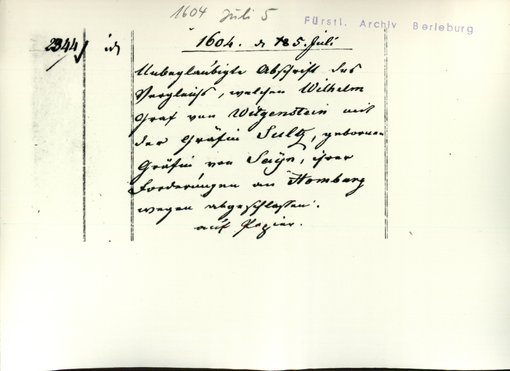 1604 Juli 5
Fürstl. Archiv Berleburg
2344 id 1604. d 5. Juli
Unbeglaubigte Abschrift des
Vergleichs, welchen Wilhelm
Graf von Witgenstein mit
der Gräfin Sultz, geborenen
Gräfin von Sayn, ihrer
Forderungen an Homburg
wegen abgeschlossen.
auf Papier.